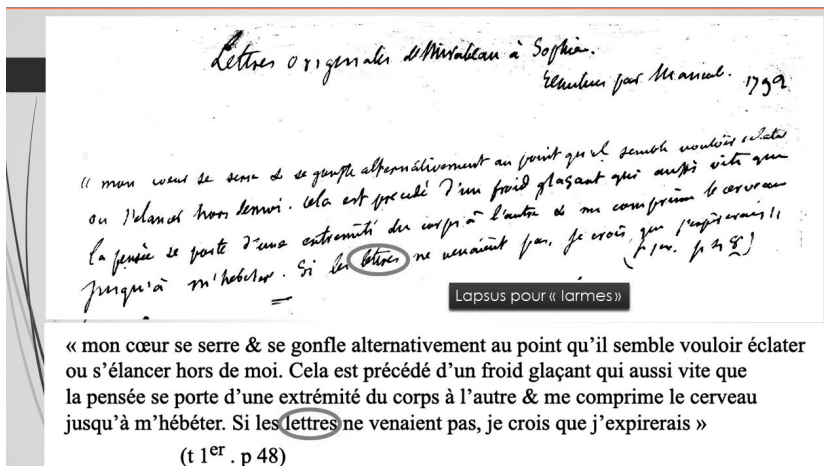 Lettres originales de Mirabeau à Sophie.
par Manuel. 1792
« mon cœur se serre & se gonfle alternativement au point qu'il semble vouloir éclater
ou s'élancer hors de moi. Cela est précédé d'un froid glaçant qui aussi vite que
la pensée se porte d'une extrémité du corps à l'autre & me comprime le cerveau
jusqu'à m'hébéter. Si les lettres ne venaient pas, je crois que j'expirerais »
(t 1er. p 48)
Lapsus pour « larmes »
« mon cœur se serre & se gonfle alternativement au point qu'il semble vouloir éclater
ou s'élancer hors de moi. Cela est précédé d'un froid glaçant qui aussi vite que
la pensée se porte d'une extrémité du corps à l'autre & me comprime le cerveau
jusqu'à m'hébéter. Si les lettres ne venaient pas, je crois que j'expirerais »
(t 1er . p 48)